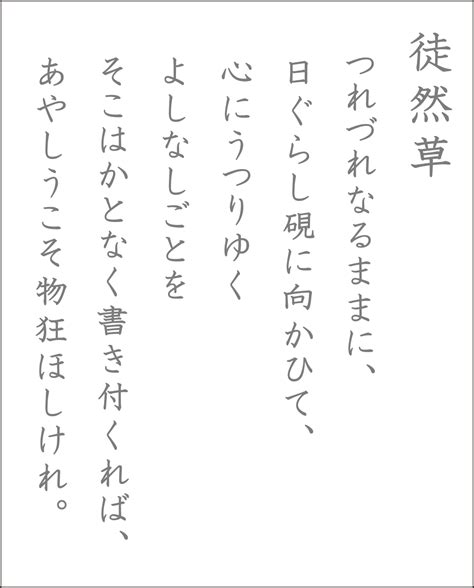 徒然草
つれづれなるままに、
日ぐらし硯に向かひて、
心にうつりゆく
よしなしごとを
そこはかとなく書き付くれば、
あやしうこそ物狂ほしけれ。